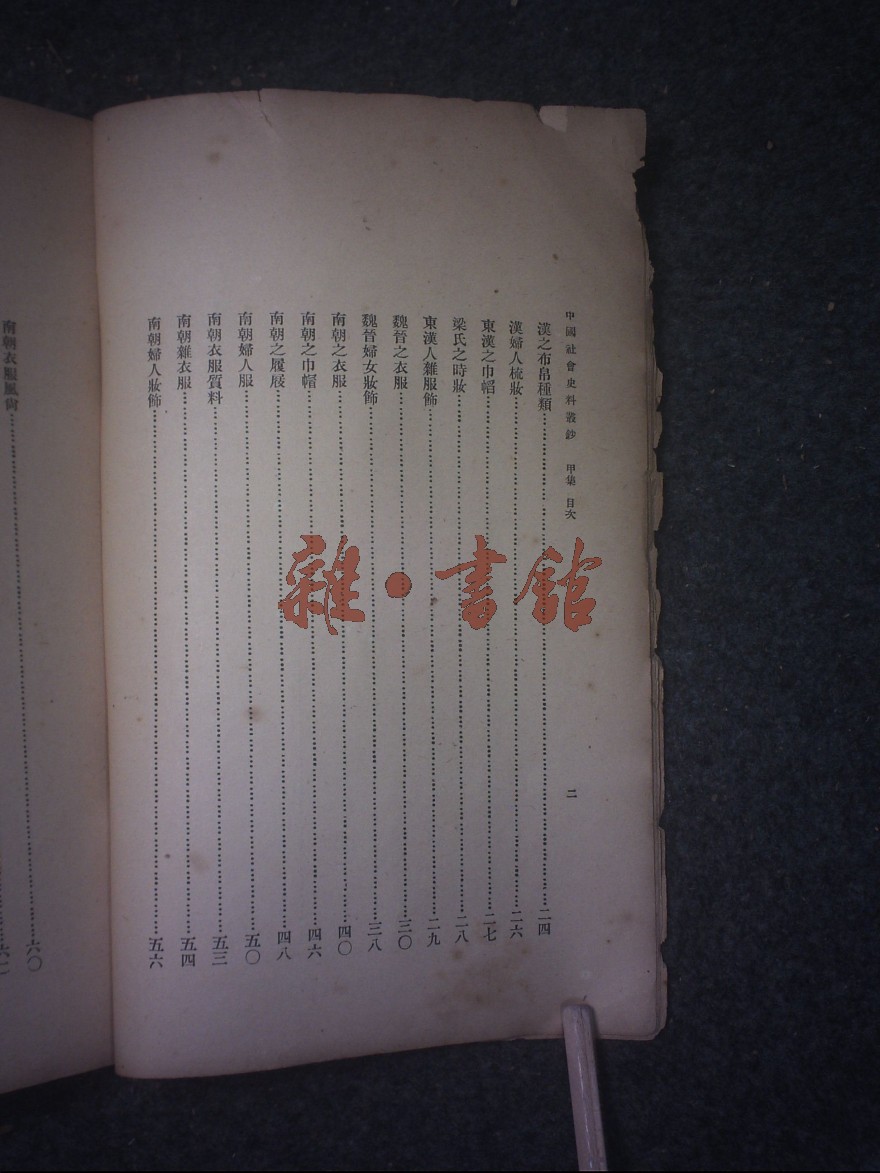 中國社會史料叢鈔　甲集　目次　二
漢之布帛種類……二四
漢婦人梳妝……二六
東漢之巾幍……二七
梁氏之時妝……二八
東漢人雜服飾……二九
魏晉之衣服……三〇
魏晉婦女妝飾……三八
南朝之衣服……四〇
南朝之巾帽……四六
南朝之履屐……四八
南朝婦人服……五〇
南朝衣服質料……五三
南朝雜衣服……五四
南朝婦人妝飾……五六
南朝衣服風尙……六〇
雜·書館